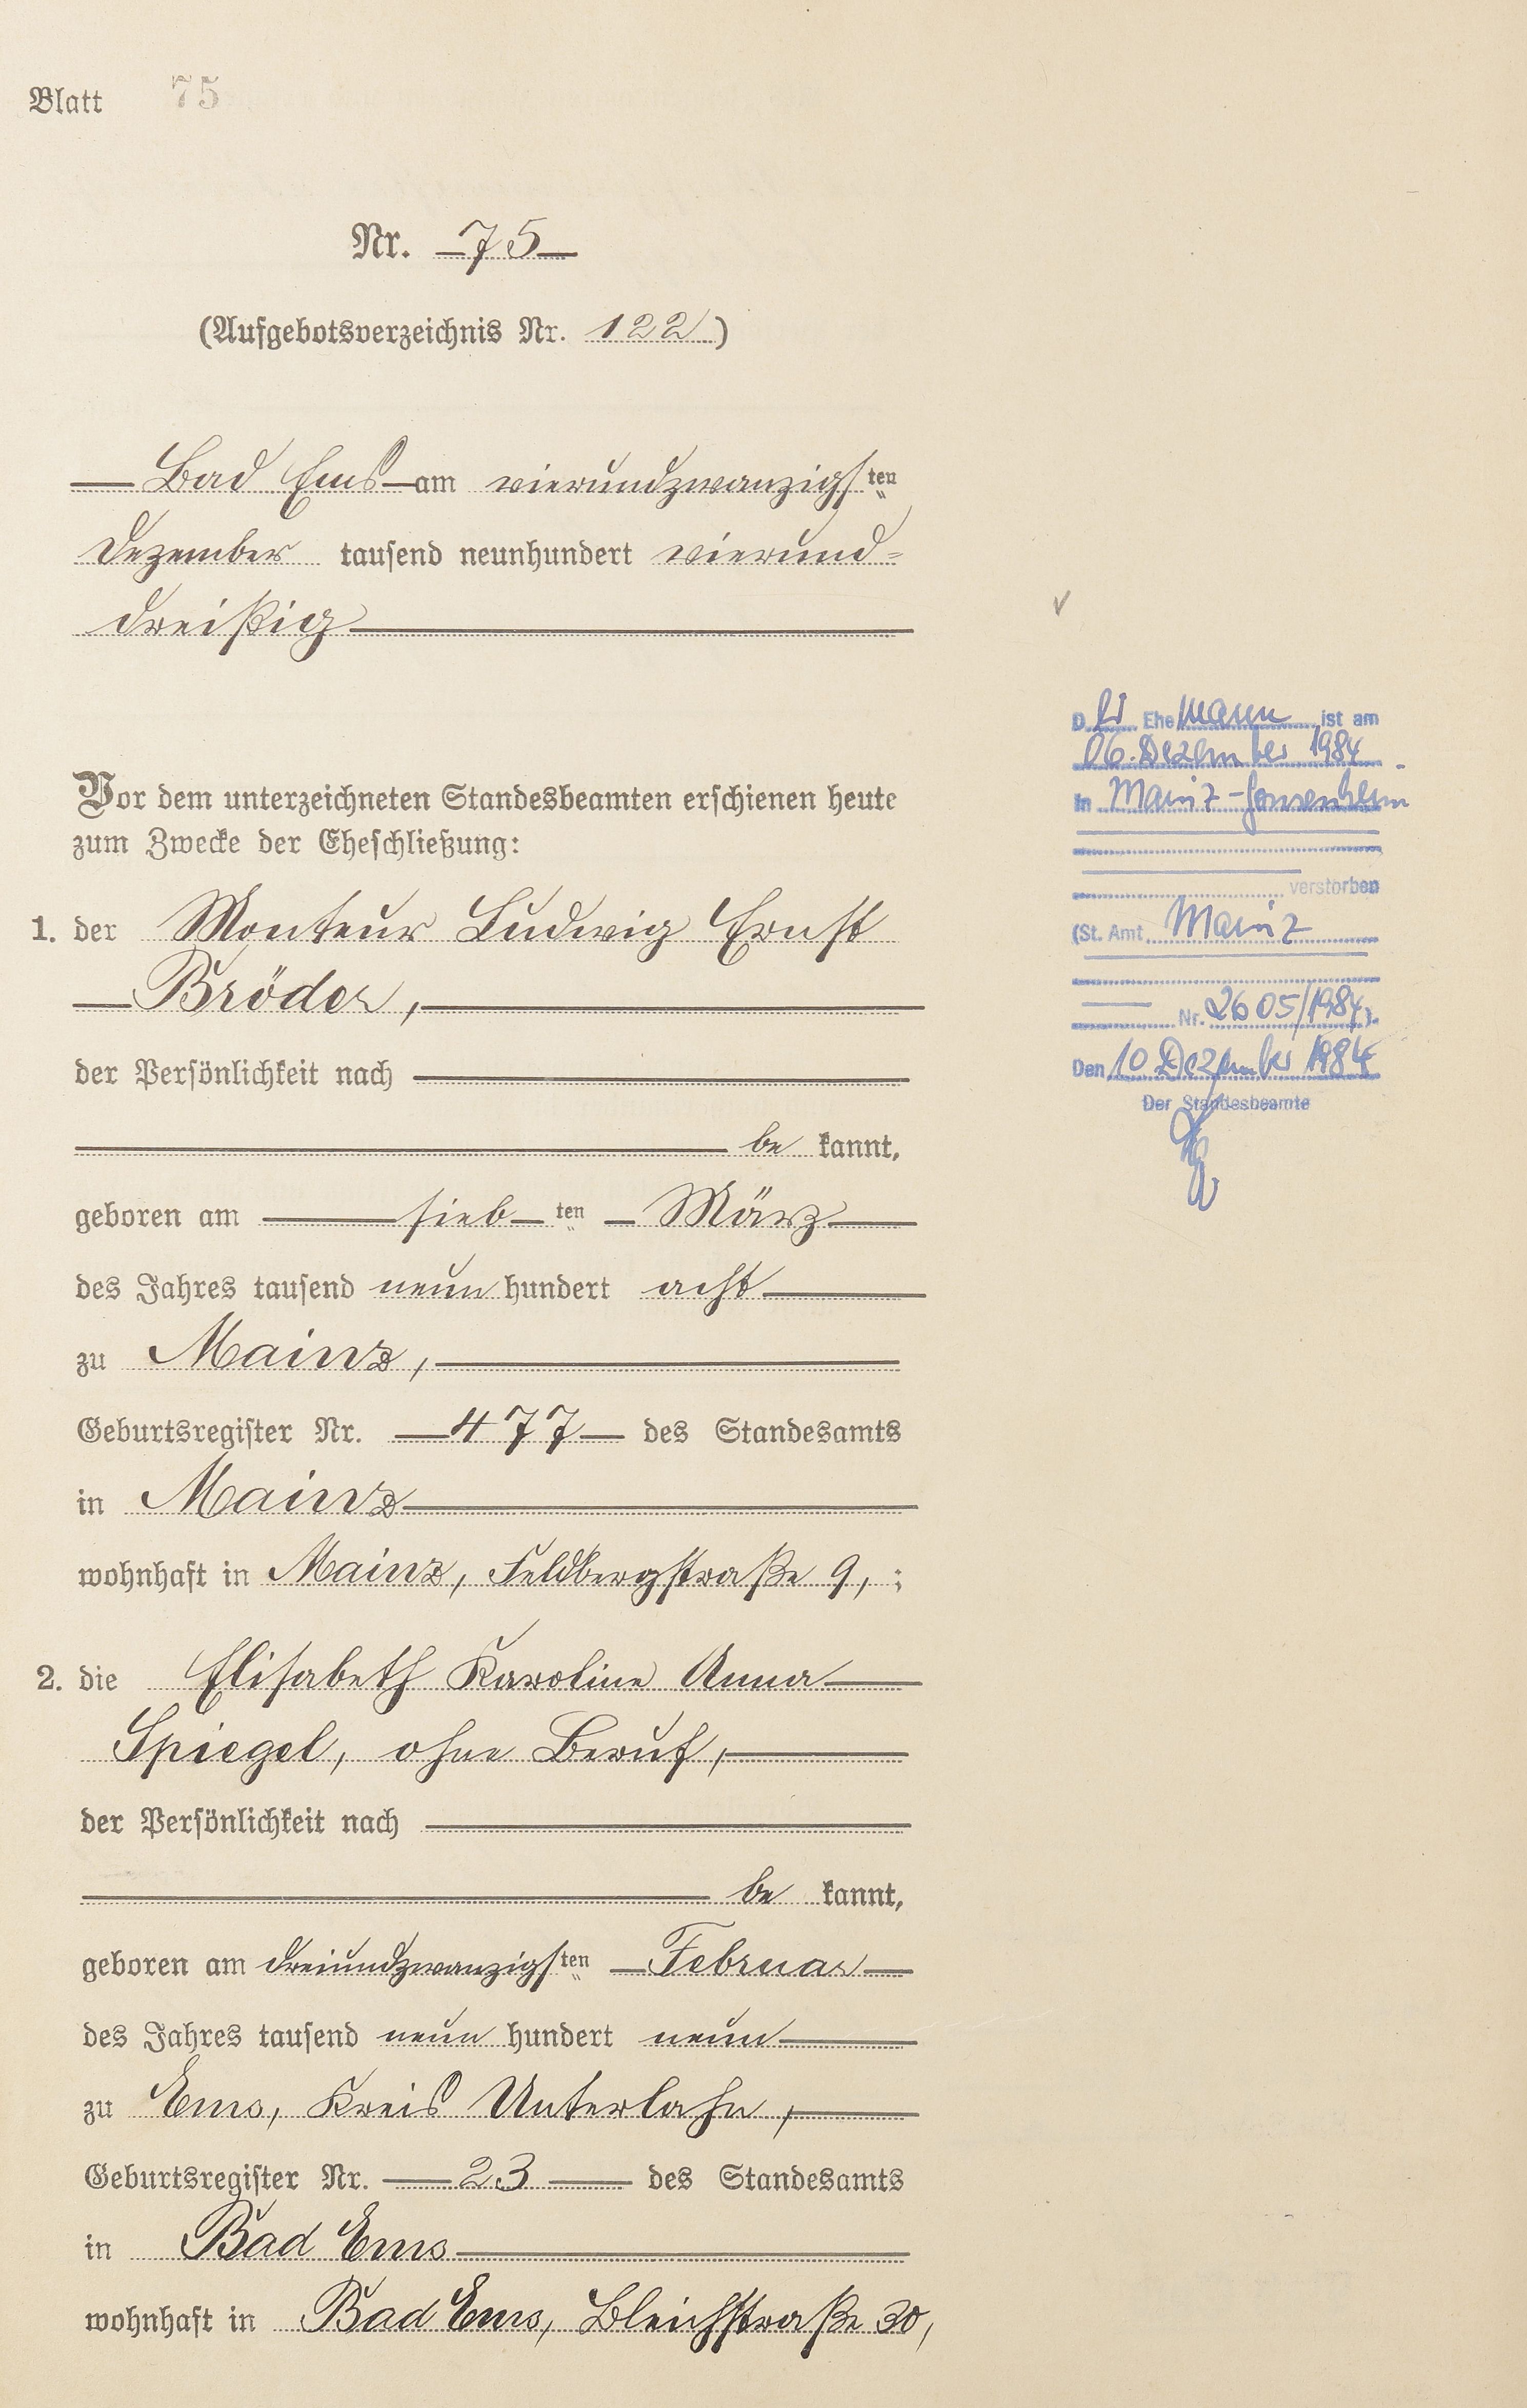 Blatt 75
Nr. 75
(Aufgebotsverzeichnis Nr. 122)
Bad Ems am vierundzwanzigsten
Dezember tausend neunhundert vierund=
dreißig
Vor dem unterzeichneten Standesbeamten erschienen heute
zum Zwecke der Eheschließung:
1. der Monteur Ludwig Ernst
Bröder,
der Persönlichkeit nach
be kannt,
geboren am siebten März
des Jahres tausend neun hundert acht
zu Mainz,
Geburtsregister Nr. 477 des Standesamts
in Mainz
wohnhaft in Mainz, Feldbergstraße 9, ;
2. die Elisabeth Karoline Anna
Spiegel, ohne Beruf,
der Persönlichkeit nach
be kannt,
geboren am dreiundzwanzigsten Februar
des Jahres tausend neun hundert neun
zu Ems, Kreis Unterlahn,
Geburtsregister Nr. 23 des Standesamts
in Bad Ems
wohnhaft in Bad Ems, Bleichstraße 30,
D er Ehe mann ist am
06. Dezember 1984
in Mainz-Gonsenheim
verstorben
(St. Amt Mainz
Nr. 2605/1984).
Den 10 Dezember 1984
Der Standesbeamte